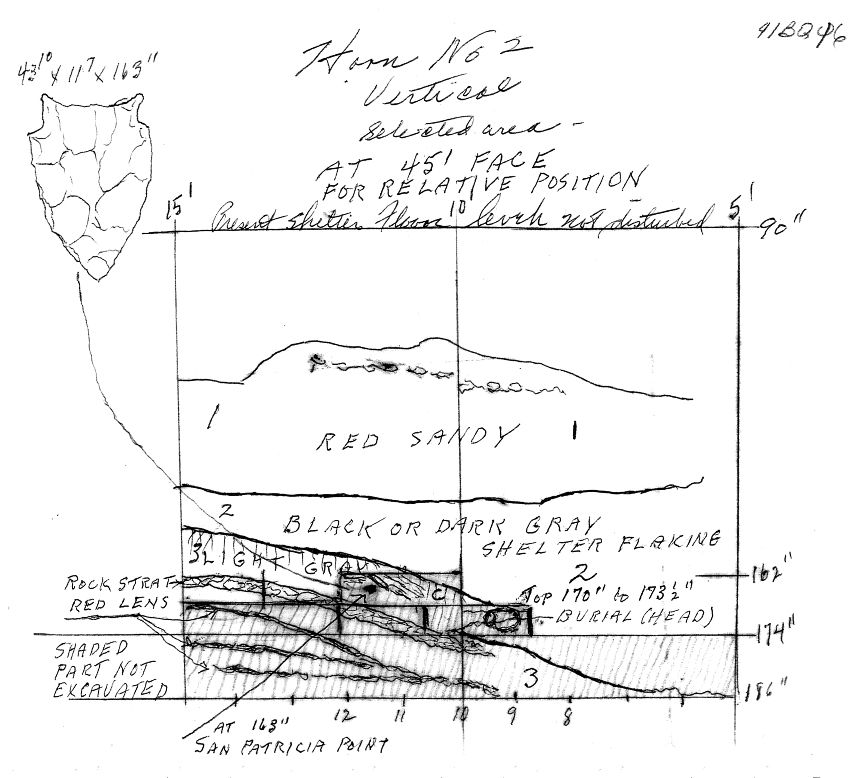 41BQ46
Horn No 2
Vertical
Selected area -
AT 45' FACE
FOR RELATIVE POSITION
15' 10' 5'
Present shelter Floor level not disturbed
90"
1 1
RED SANDY
2
BLACK OR DARK GRAY
SHELTER FLAKING
2
3LIGHT GRAY
162"
ROCK STRAT
RED LENS
C
TOP 170" to 173½"
BURIAL (HEAD)
174"
SHADED
PART NOT
EXCAVATED
3
186"
12 11 10 9 8
AT 163"
SAN PATRICIA POINT